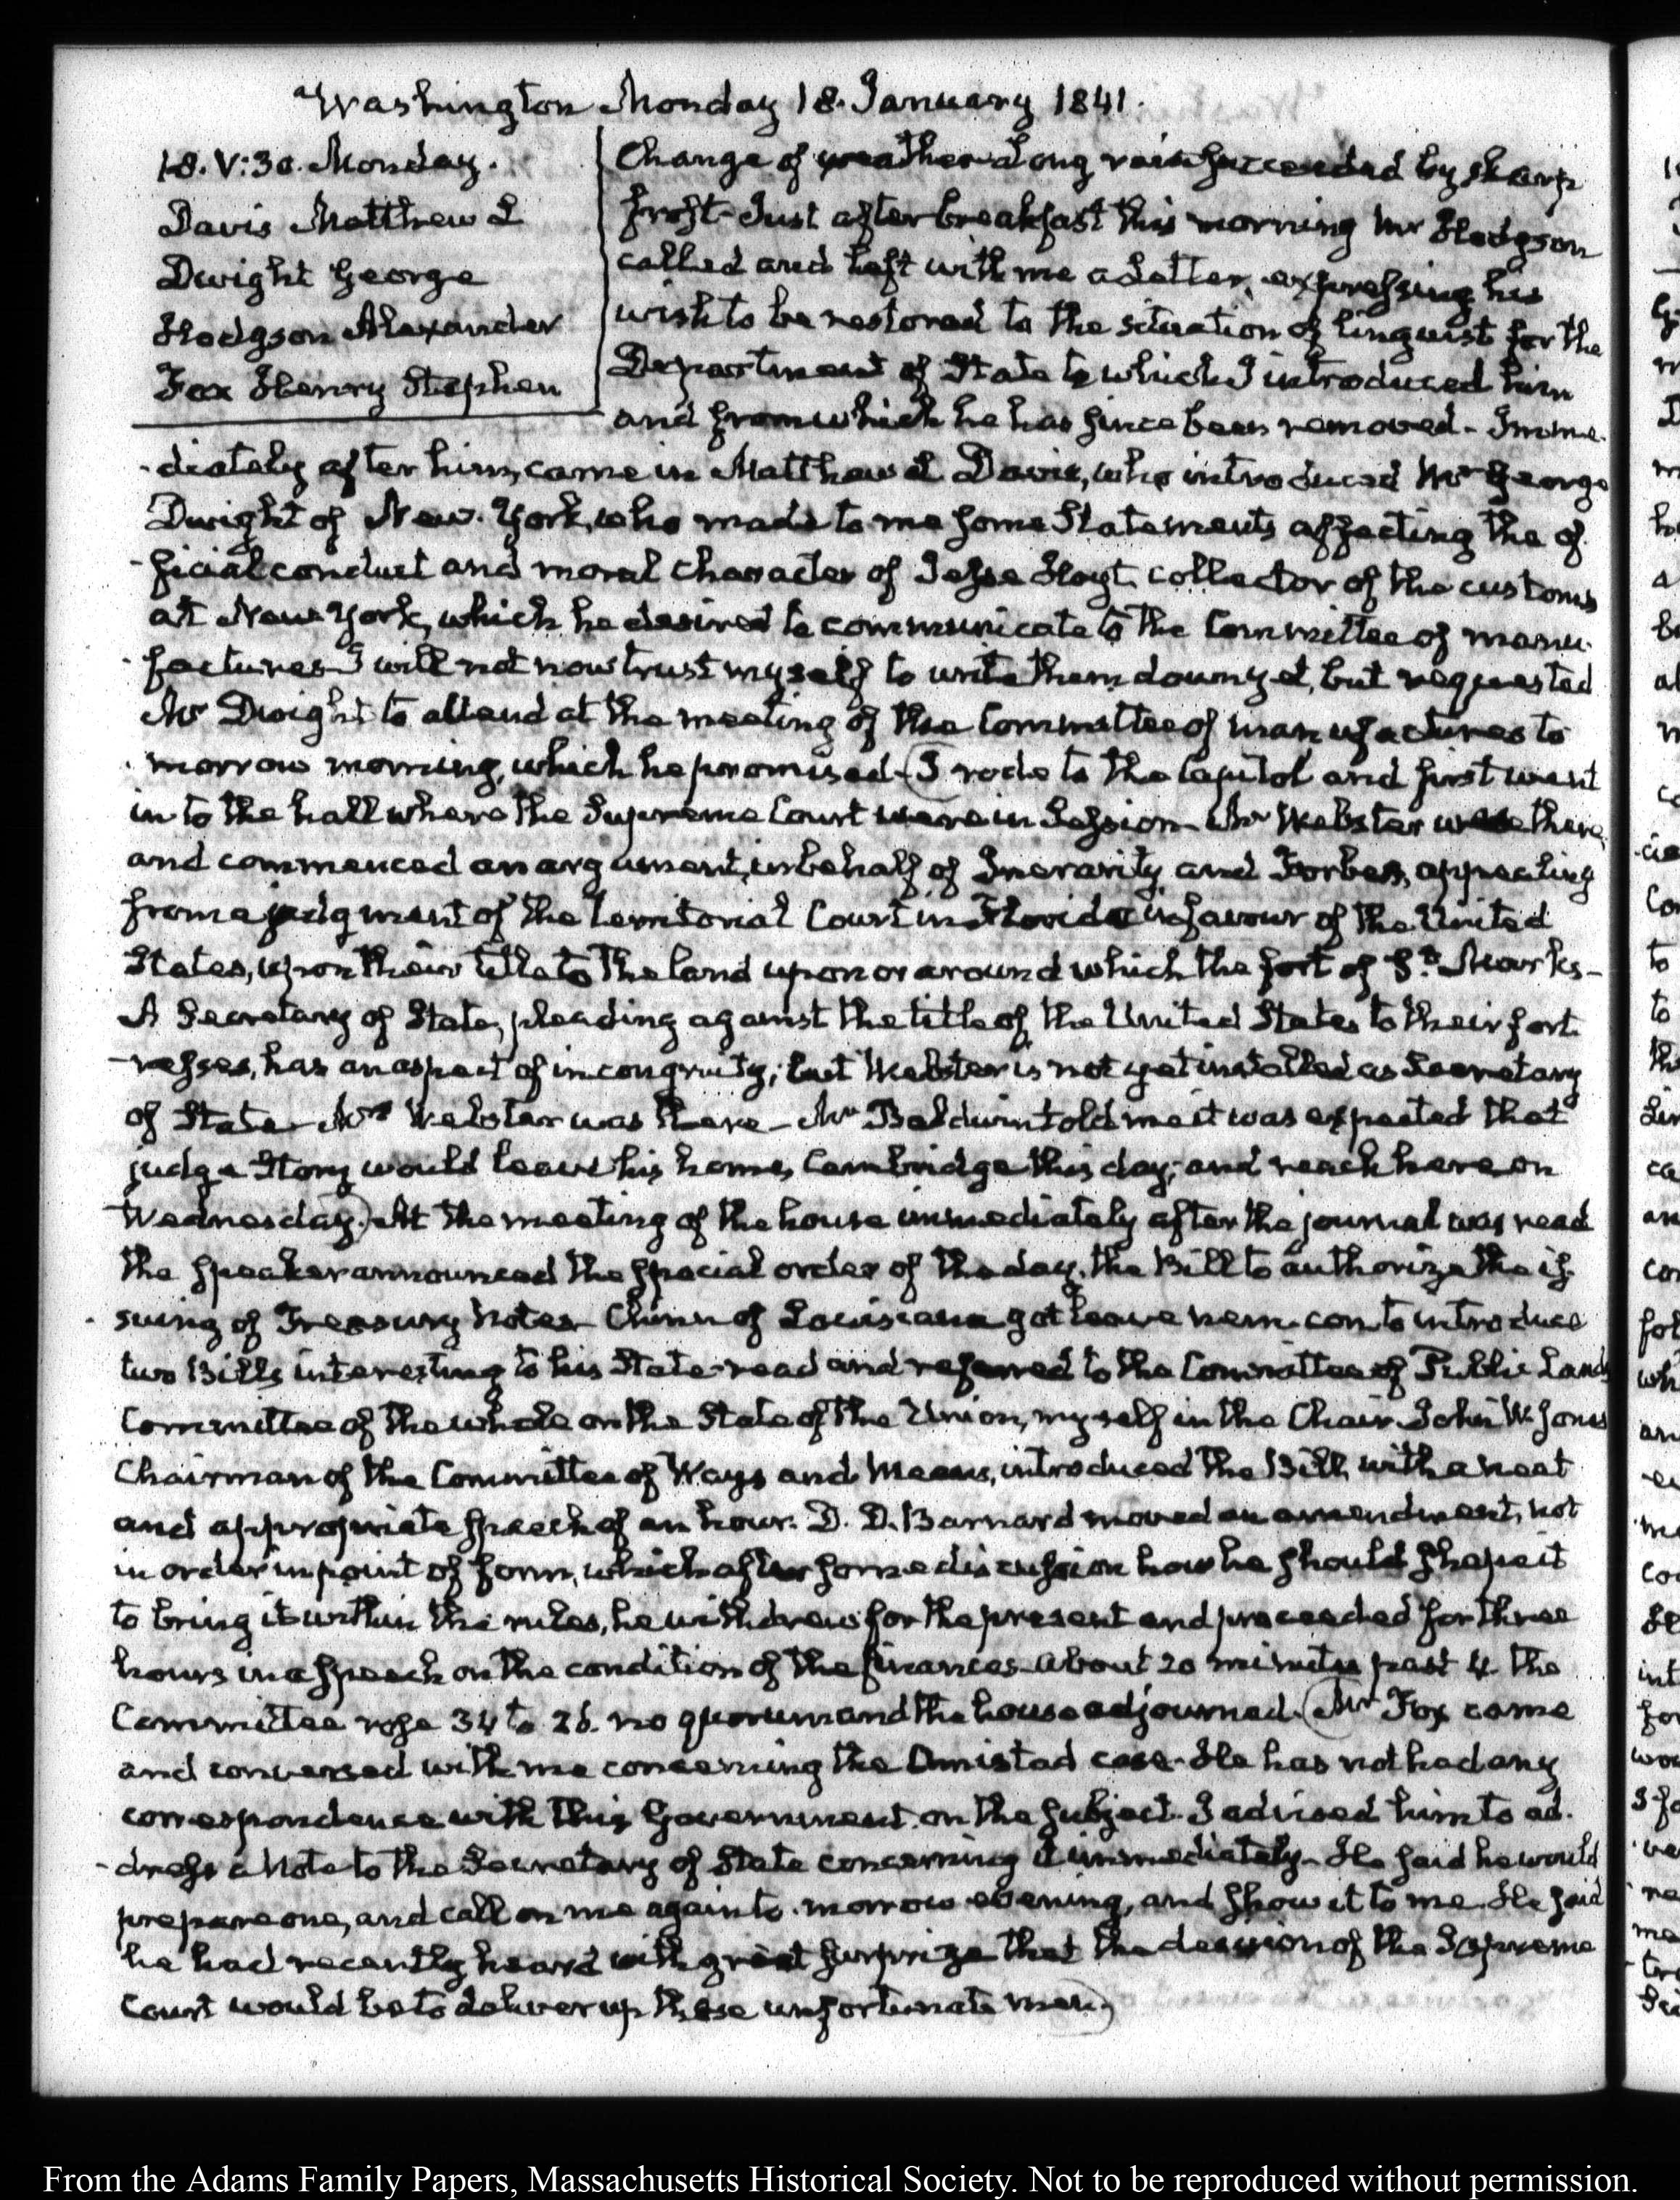 Washington Monday 18. January 1841.
18. V:30. Monday.
Davis Matthew L
Dwight George
Hodgson Alexander
Fox Henry Stephen
Change of weather. Long rain succeeded by sharp
frost. Just after breakfast this morning Mr Hodgson
called and left with me a Letter, expressing his
wish to be restored to the situation of linguist for the
Department of State to which I introduced him
and from which he has since been removed - Imme-
-diately after him, came in Matthew L Davis, who introduced Mr George
Dwight of New-York, who made to me some Statements affecting the of-
-ficial conduct and moral character of Jesse Hoyt collector of the customs
at New York, which he desired to communicate to the Committee of manu-
-factures - I will not now trust myself to write them down yet, but requested
Mr Dwight to attend at the meeting of the Committee of manufactures to-
-morrow morning, which he promised - (I rode to the Capitol and first went
in to the hall where the Supreme Court were in Session - Mr Webster was there
and commenced an argument, in behalf of Inerarity and Forbes, appealing
from a judgment of the territorial Court in Florida in favour of the United
States, upon their title to the land upon or around which the fort of St. Marks -
A Secretary of State, pleading against the title of the United States to their fort-
-resses, has an aspect of incongruity; but Webster is not yet installed as Secretary
of State - Mrs Webster was there - Mr Baldwin told me it was expected that
judge Story would leave his home, Cambridge this day; and reach here on
Wednesday.) At the meeting of the house immediately after the journal was read
the Speaker announced the special order of the day, the Bill to authorize the is-
-suing of Treasury Notes - Chinn of Louisiana got leave nem. con. to introduce
two Bills interesting to his State - read and referred to the Committee of Public Lands
Committee of the whole on the State of the Union, myself in the Chair. John W. Jones
Chairman of the Committee of Ways and Means, introduced the Bill, with a neat
and appropriate speech of an hour. D. D. Barnard moved an amendment, not
in order in point of form, which after some discussion how he should shape it
to bring it within the rules, he withdrew for the present and proceeded for three
hours in a speech on the condition of the finances - about 20 minutes past 4 the
Committee rose 34 to 26. no quorum and the house adjourned. (Mr Fox came
and conversed with me concerning the Amistad case - He has not had any
correspondence with this Government on the subject. I advised him to ad-
-dress a Note to the Secretary of State concerning it immediately - He said he would
prepare one, and call on me again to-morrow evening, and show it to me. He said
he had recently heard with great surprize that the decision of the Supreme
Court would be to deliver up these unfortunate men.)
From the Adams Family Papers, Massachusetts Historical Society. Not to be reproduced without permission.